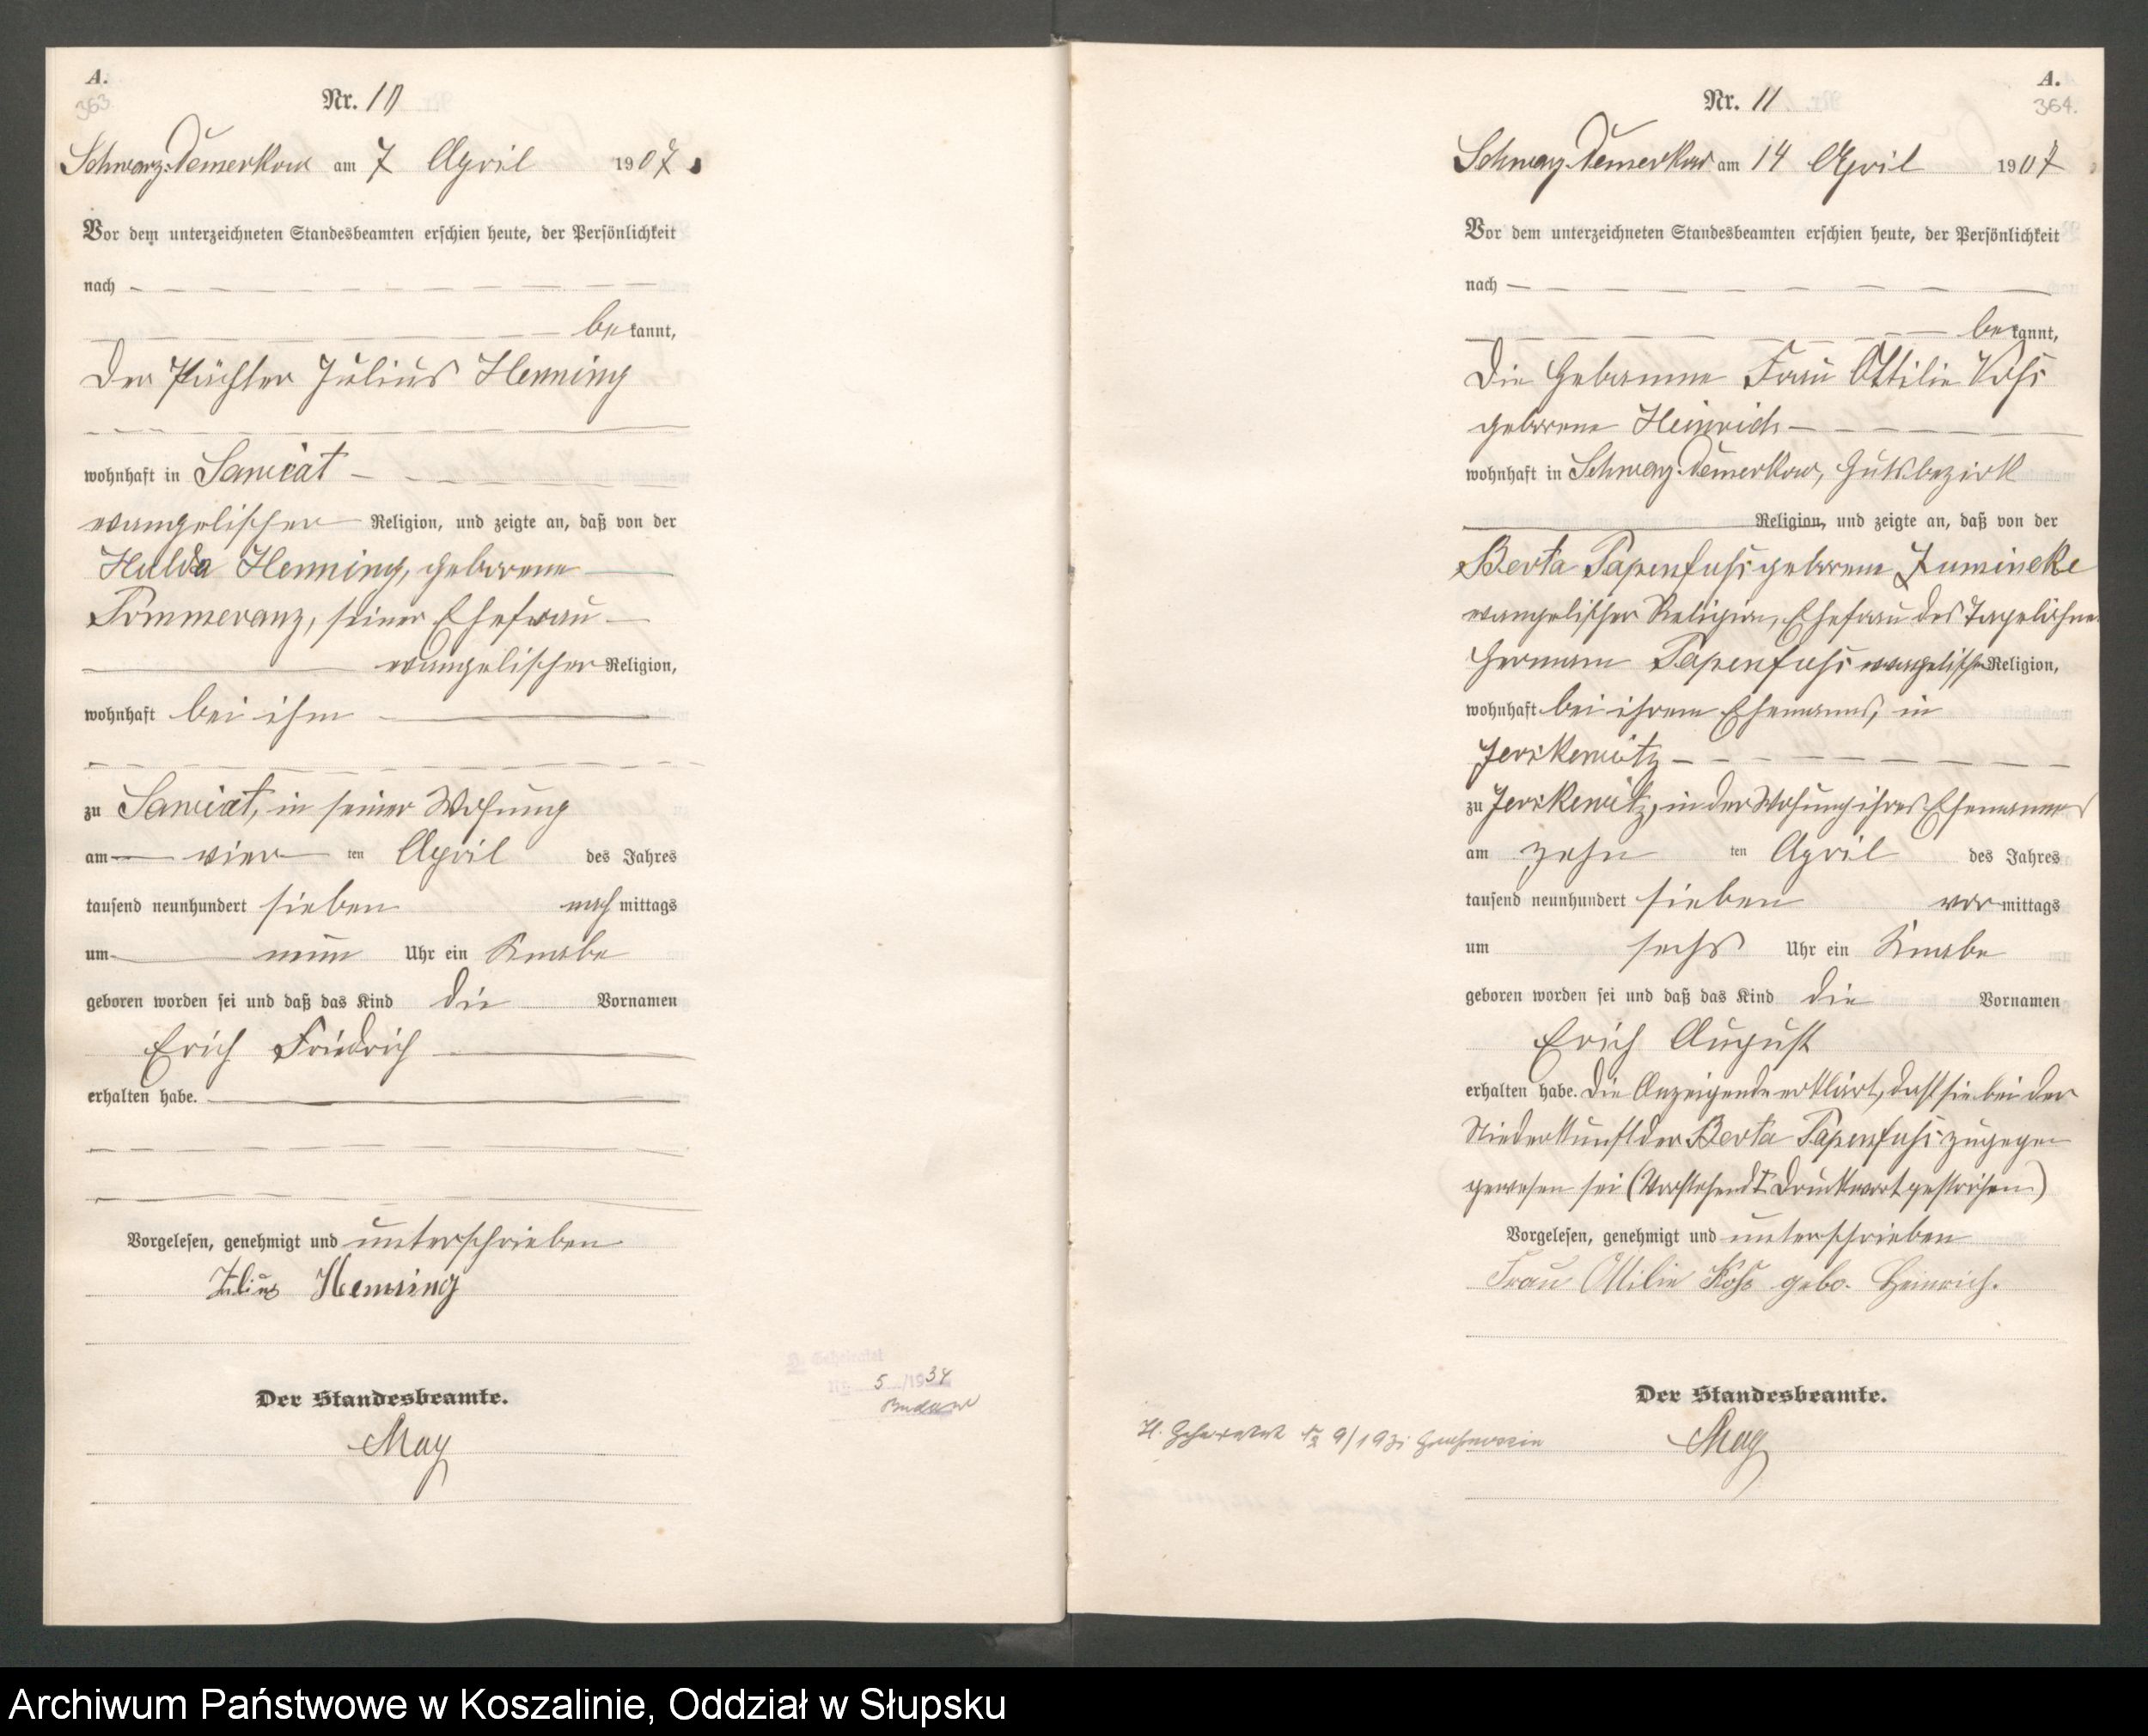 A.
363.
Nr. 10
Schwarz-Damerkow am 7 April 1907.
Vor dem unterzeichneten Standesbeamten erschien heute, der Persönlichkeit
nach
bekannt,
der Pächter Julius Henning
wohnhaft in Sanicat
evangelischer Religion, und zeigte an, daß von der
Hulda Henning, geborene
Pommeranz, seiner Ehefrau
evangelischer Religion,
wohnhaft bei ihm
zu Sanicat, in seiner Wohnung
am vier ten April des Jahres
tausend neunhundert sieben nachmittags
um neun Uhr ein Knabe
geboren worden sei und daß das Kind die Vornamen
Erich Friedrich
erhalten habe.
Vorgelesen, genehmigt und unterschrieben
Julius Henning
Der Standesbeamte.
May
H. Geheiratet
Nr. 5/1934
Budow
A.
364.
Nr. 11
Schwarz-Damerkow am 14 April 1907
Vor dem unterzeichneten Standesbeamten erschien heute, der Persönlichkeit
nach
bekannt,
die Hebamme Frau Ottilie
geborene Heinrich
wohnhaft in Schwarz-Damerkow, Gutsbezirk
Religion, und zeigte an, daß von der
Berta Papenfuß geborene Zumincke
evangelischer Religion, Ehefrau des Tagelöhner
Hermann Papenfuß evangelischer Religion,
wohnhaft bei ihrem Ehemanns, in
Jerskewitz
zu Jerskewitz, in der Wohnung ihres Ehemannes
am zehn ten April des Jahres
tausend neunhundert sieben vormittags
um sechs Uhr ein Knabe
geboren worden sei und daß das Kind die Vornamen
Erich August
erhalten habe. Die Anzeigende erklärt, daß sie bei der
Niederkunft der Berta Papenfuß zugegen
gewesen sei (Vorstehend 1 Druckwort gestrichen)
Vorgelesen, genehmigt und unterschrieben
Frau Ottilie geb. Heinrich.
Der Standesbeamte.
May
H. Geheiratet Nr 9/193
Archiwum Państwowe w Koszalinie, Oddział w Słupsku